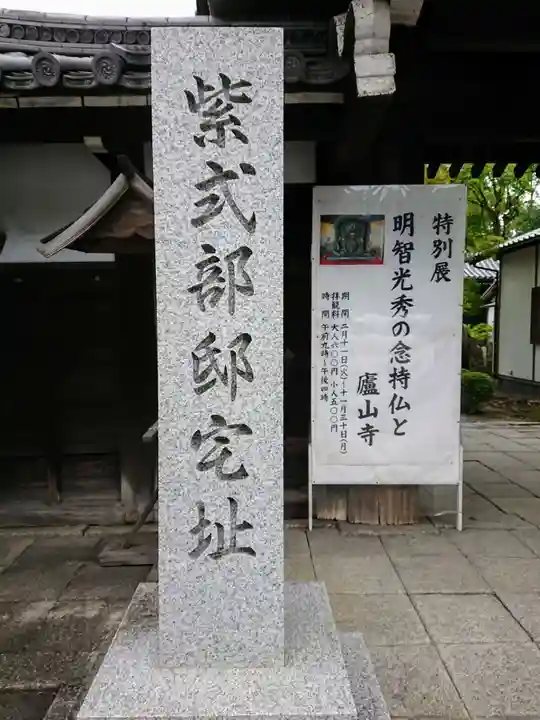 紫式部邸宅址
特別展
明智光秀の念持仏と
廬山寺
期間 二月十一日(火)～十一月三十日(月)
拝観料 大人六〇〇円 小人五〇〇円
時間 午前九時～午後四時